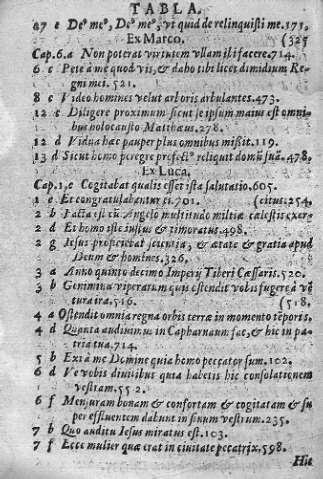 TABLA.
27 e Deꝰ meꝰ, Deꝰ meꝰ, vt quid de relinquisti me.175,
Ex Marco. (325
Cap.6.a Non poterat virtutem vllam ibi facere.714.
6 c Pete à me quod vis, & dabo tibi licet dimidium Re-
gni mei.521.
8 c Video homines velut arbores ambulantes.473.
12 c Diligere proximum sicut se ipsum maius est omni-
bus holocausto Matthaus.278.
12 d Vidua hæc pauper plus omnibus misit.119.
13 d Sicut homo peregre profectꝰ reliquit domū suā.478,
Ex Luca.
Cap.1,e Cogitabat qualis esset ista salutatio.605.
1 e Et congratulabantur ei.701. (citus.254,
2 b Facta est cū Angelo multitudo militiæ cælestis exer-
2 d Et homo iste iustus & timoratus.498.
2 g Iesus proficiebat sapientia, & ætate & gratia apud
Deum & homines.326.
3 a Anno quinto decimo Imperij Tiberi Cæssaris.520.
3 b Genimina viperarum quis ostendit vobis fugere à vē
tura ira.516. (518.
4 a Ostendit omnia regna orbis terræ in momento tēporis,
4 d Quanta audiuimus in Capharnaum fac, & hic in pa-
tria tua.714.
5 b Exi à me Domine quia homo peccator sum.102.
6 d Ve vobis diuitibus quia habetis hic consolationem
vestram.552.
6 f Mensuram bonam & confertam & cogitatam & su
per effluentem dabunt in sinum vestrum.235.
7 b Quo auditu Iesus miratus est.103.
7 f Ecce mulier quæ erat in ciuitate pecatrix.598.
Hic